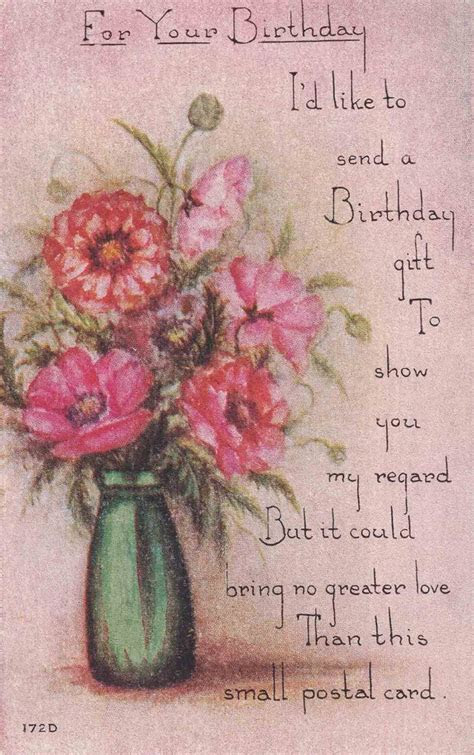 For Your Birthday
I'd like to
send a
Birthday
gift
To
show
you
my regard
But it could
bring no greater love
Than this
small postal card.
172D